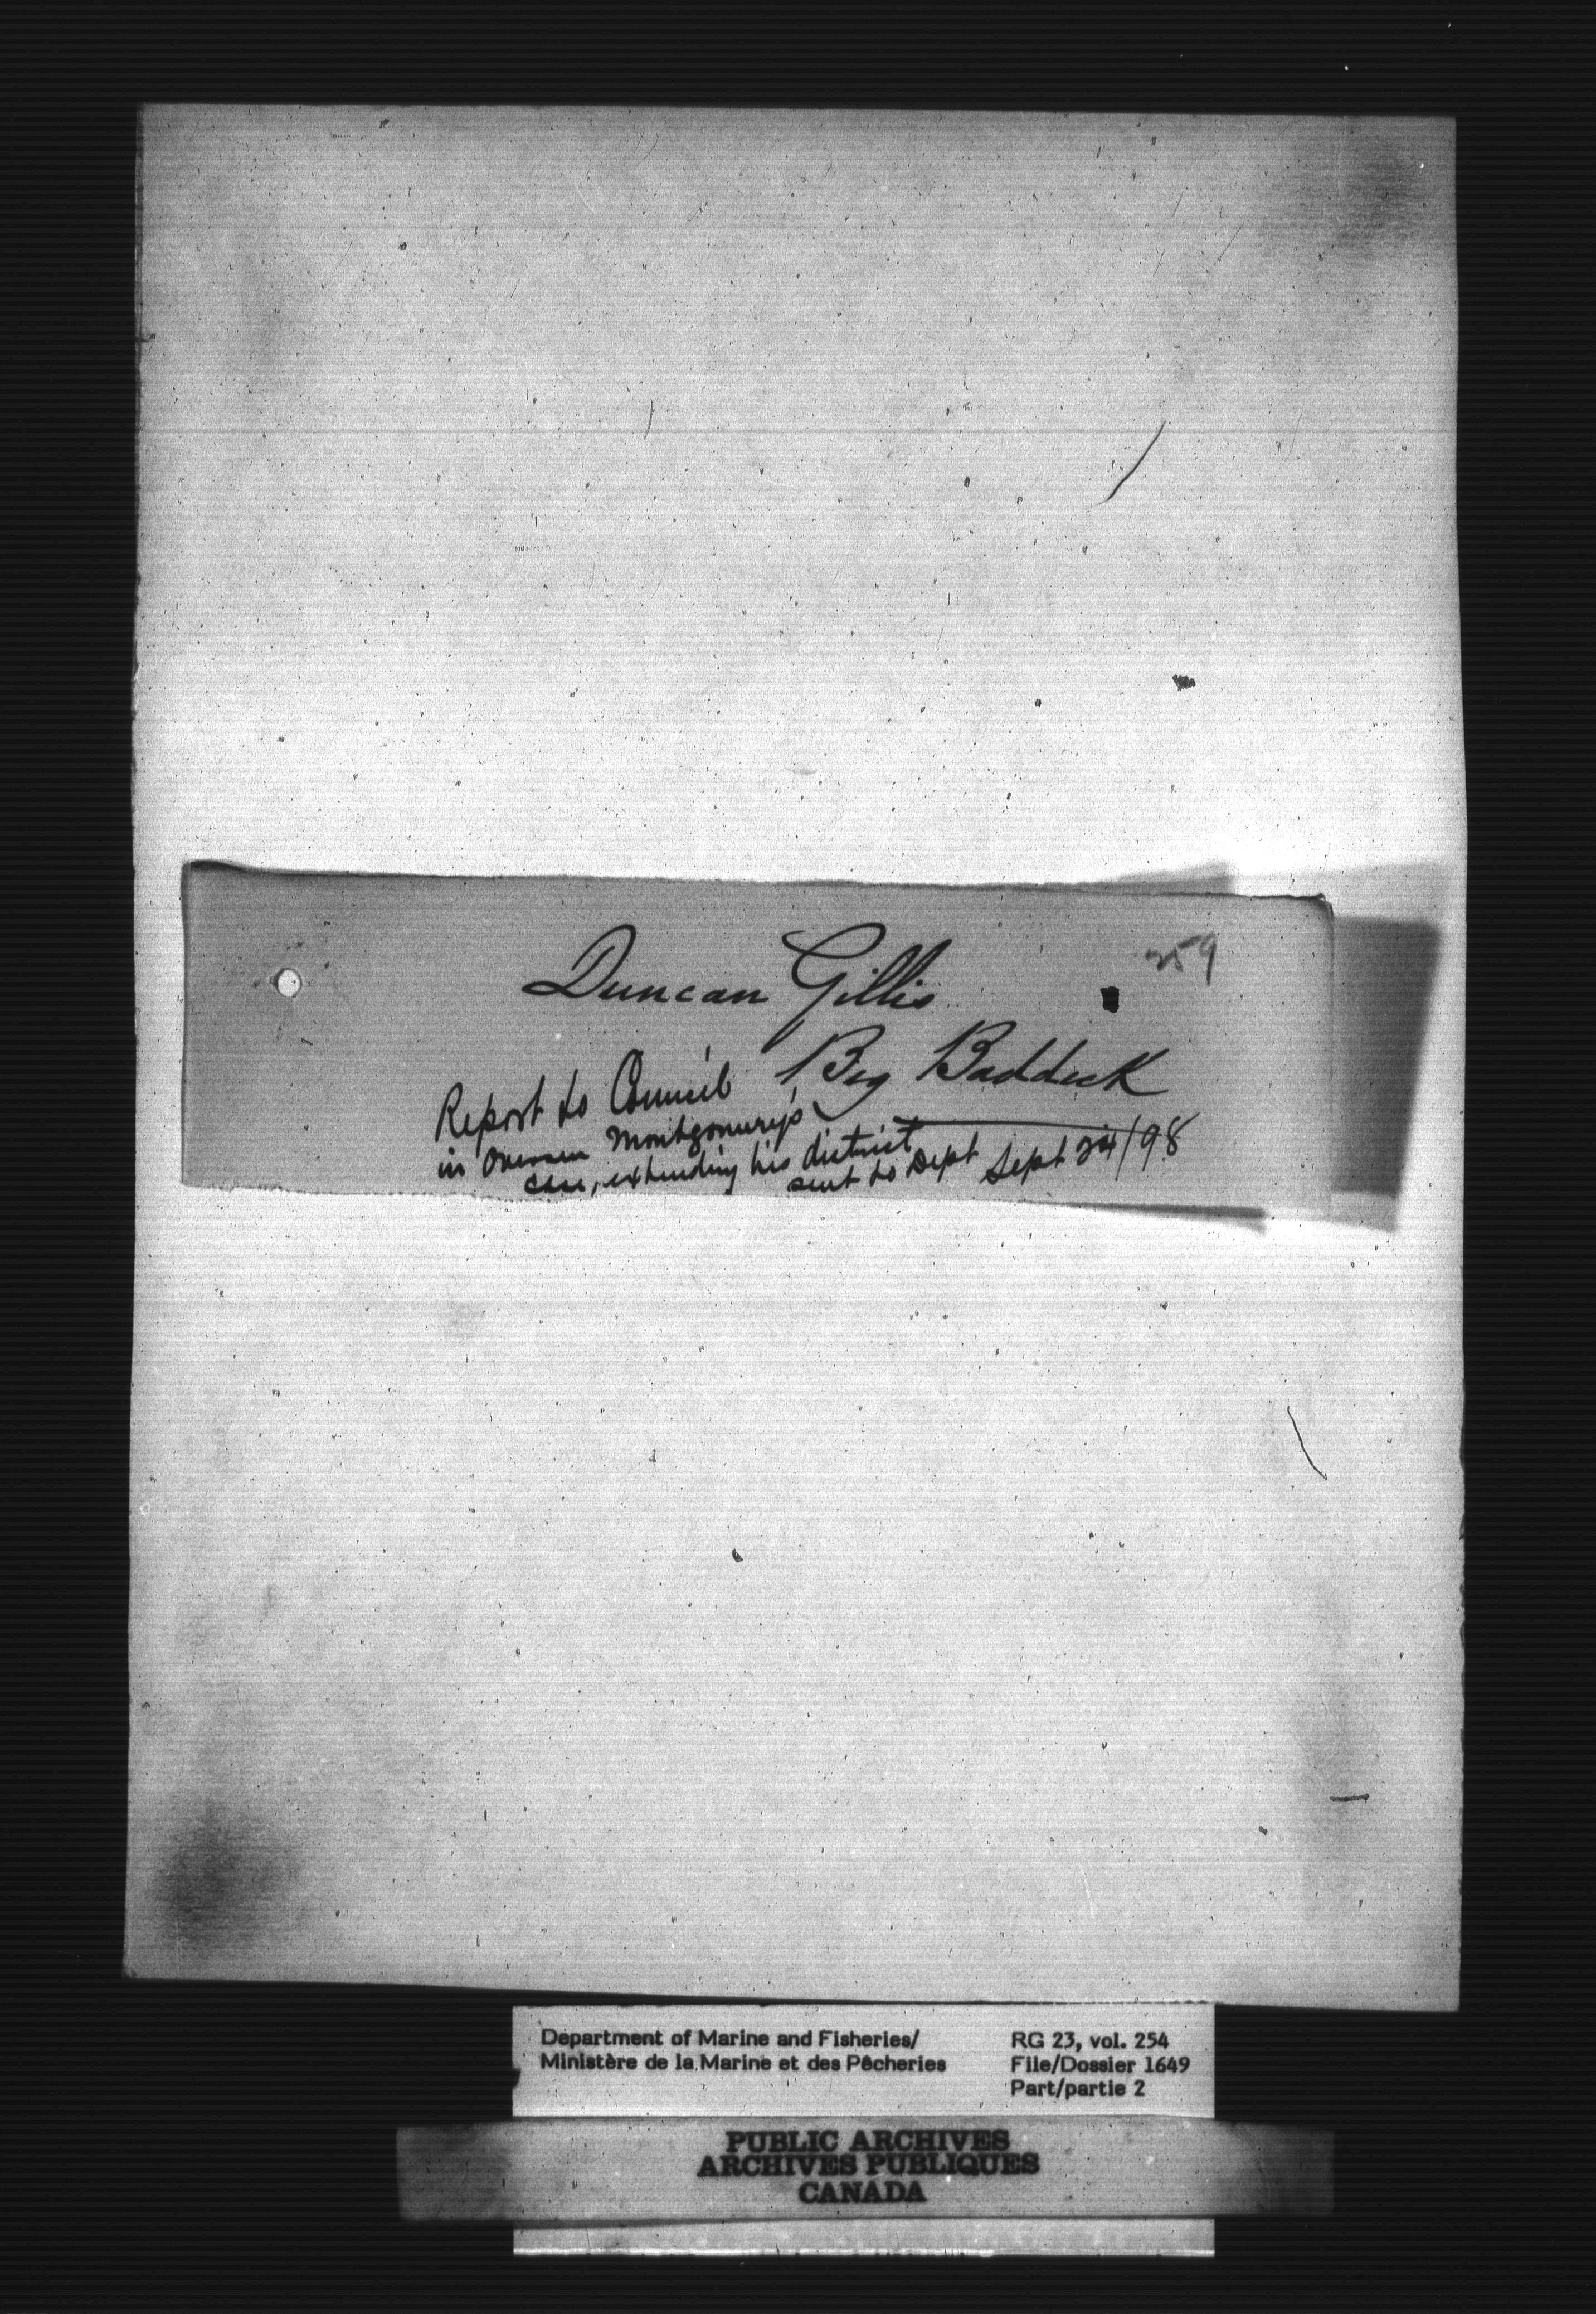 259
Duncan Gillis
Big Baddeck
Report to Council
in Overseer Montgomery's
case, extending his district
sent to Dept Sept 24/98
Department of Marine and Fisheries/
Ministère de la Marine et des Pêcheries
RG 23, vol. 254
File/Dossier 1649
Part/partie 2
PUBLIC ARCHIVES
ARCHIVES PUBLIQUES
CANADA